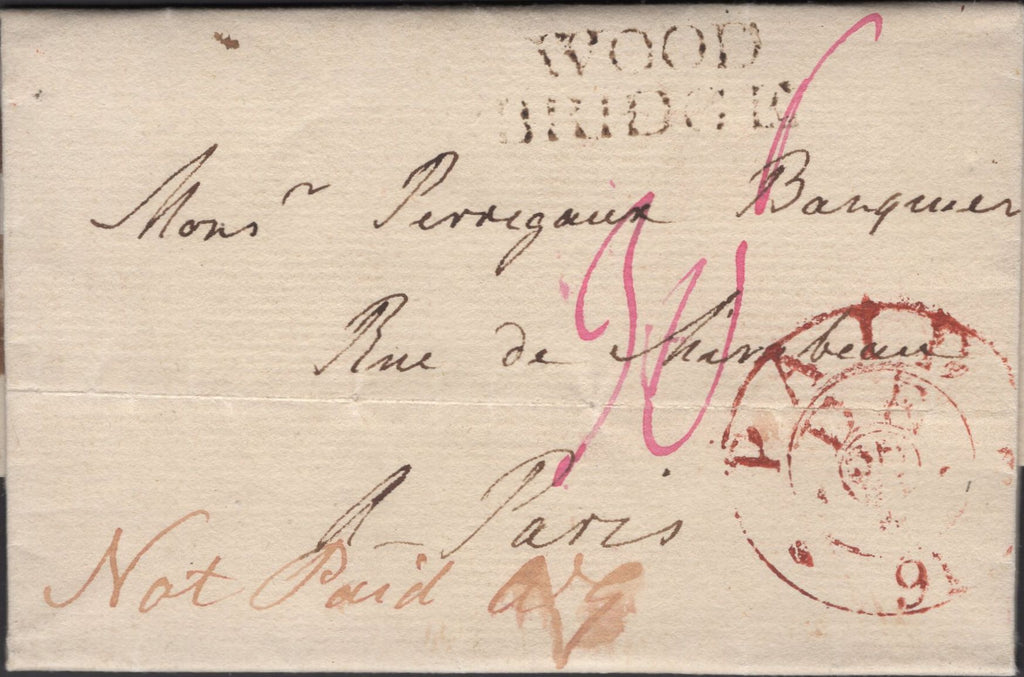 WOOD
BRIDGE
Monsr Perregaux Banquier
Rue de Mirabeau
A Paris
Not Paid
PAID
91